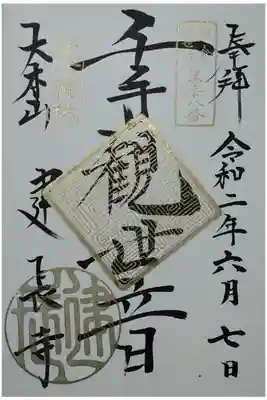 奉拝
令和二年六月七日
千手観世音
大本山
建長寺